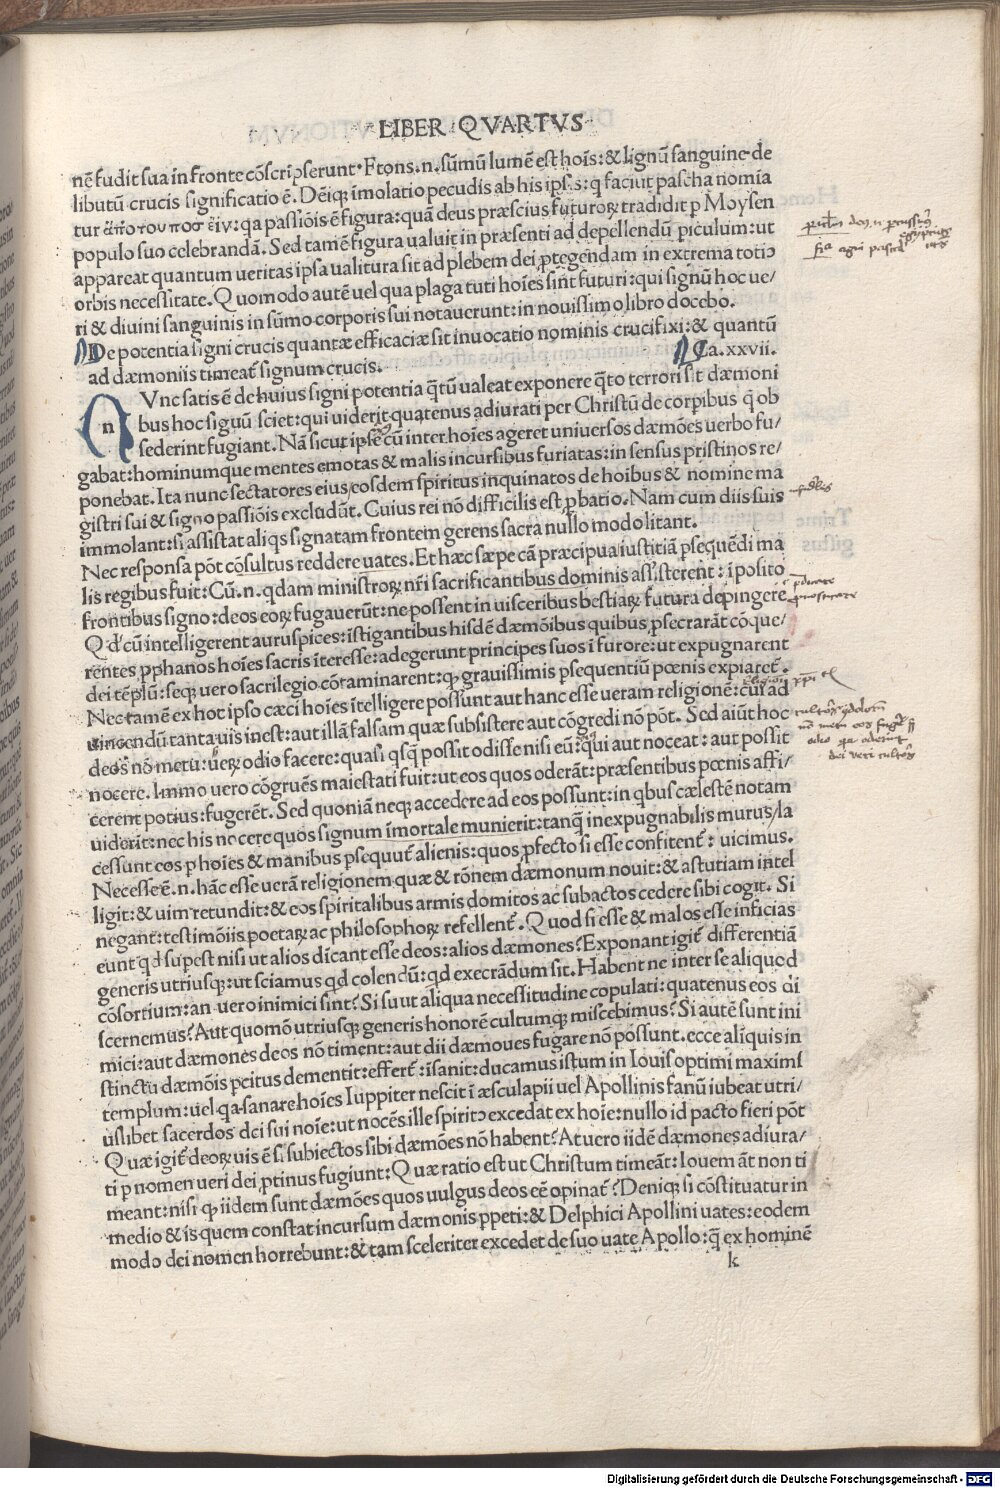 LIBER QVARTVS
nē fudit sua in fronte cōscripserunt. Frons.n. sūmū lumē est hoīs: & lignū sanguine de
libutū crucis significatio ē. Deiq; īmolatio pecudis ab his ipsis: q faciūt pascha nomīa
tur ἀπο του πασχειν: qa passiōis ē figura: quā deus præscius futuroꝝ tradidit p Moysen
populo suo celebrandā. Sed tamē figura ualuit in præsenti ad depellendū piculum: ut
appareat quantum ueritas ipsa ualitura sit ad plebem dei ꝓtegendam in extrema totiꝰ
orbis necessitate. Quomodo autē uel qua plaga tuti hoīes sint futuri: qui signū hoc ue/
ri & diuini sanguinis in sūmo corporis sui notauerunt: in nouissimo libro docebo.
De potentia signi crucis quantæ efficaciæ sit inuocatio nominis crucifixi: & quantū
ad dæmoniis timeat̄ signum crucis. Ca.xxvii.
n Vnc satis ē de huius signi potentia q̄tū ualeat exponere q̄to terrori sit dæmoni
bus hoc siguū sciet: qui uiderit quatenus adiurati per Christū de corpibus q̄ ob
sederint fugiant. Nā sicut ipse cū inter hoīes ageret uniuersos dæmōes uerbo fu/
gabat: hominumque mentes emotas & malis incursibus furiatas: in sensus pristinos re/
ponebat. Ita nunc sectatores eius eosdem spiritus inquinatos de hoibus & nomine ma
gistri sui & signo passiōis excludāt. Cuius rei nō difficilis est ꝓbatio. Nam cum diis suis
immolant: si assistat aliqs signatam frontem gerens sacra nullo modo litant.
Nec responsa pōt cōsultus reddere uates. Et hæc sæpe cā præcipua iustitiā psequēdi ma
lis regibus fuit: Cū.n. qdam ministroꝝ nr̄i sacrificantibus dominis assisterent: īposito
frontibus signo: deos eoꝝ fugauerūt: ne possent in uisceribus bestiaꝝ futura depingere
Qd' cū intelligerent auruspices: īstigantibus hisdē dæmōibus quibus ꝓsecrarāt cōque/
rentes pphanos hoīes sacris īteresse: adegerunt principes suos ī furore: ut expugnarent
dei tēplū: seq; uero sacrilegio cōtaminarent: q grauissimis psequentiū pœnis expiaret̄.
Nec tamē ex hoc ipso cæci hoīes ītelligere possunt aut hanc esse ueram religionē: cui ad
uincendū tanta uis inest: aut illā falsam quæ subsistere aut cōgredi nō pōt. Sed aiūt hoc
deos nō metu: ueꝝ odio facere: quasi qsq̄ possit odisse nisi eū: qui aut noceat: aut possit
nocere. Immo uero cōgruēs maiestati fuit: ut eos quos oderāt: præsentibus pœnis affi/
cerent potius: fugerēt. Sed quoniā neq; accedere ad eos possunt: in qbus cælestē notam
uiderīt: nec his nocere quos signum īmortale munierit: tanq̄ inexpugnabilis murus/la
cessunt eos p hoīes & manibus psequūt̄ alienis: quos ꝓfecto si esse confitent̄: uicimus.
Necesse ē.n. hāc esse uerā religionem quæ & rōnem dæmonum nouit: & astutiam intel
ligit: & uim retundit: & eos spiritalibus armis domitos ac subactos cedere sibi cogit. Si
negant: testimōiis poetaꝝ ac philosophoꝝ refellent̄. Quod si esse & malos esse inficias
eunt qd supest nisi ut alios dicant esse deos: alios dæmones? Exponant igit̄ differentiā
generis utriusq;: ut sciamus qd colendū: qd execrādum sit. Habent ne inter se aliquod
cōsortium: an uero inimici sint? Si suut aliqua necessitudine copulati: quatenus eos di
scernemus? Aut quomō utriusq; generis honorē cultumq; miscebimus? Si autē sunt ini
mici: aut dæmones deos nō timent: aut dii dæmoues fugare nō possunt. ecce aliquis in
stinctu dæmōis pcitus dementit: effert̄: īsanit: ducamus istum in Iouis optimi maximi
templum: uel qa sanare hoīes Iuppiter nescit ī æsculapii uel Apollinis fanū iubeat utri/
uslibet sacerdos dei sui noīe: ut nocēs ille spiritꝰ excedat ex hoie: nullo id pacto fieri pōt
Quæ igit̄ deoꝝ uis ē si subiectos sibi dæmōes nō habent? At uero iidē dæmones adiura/
ti p nomen ueri dei ꝓtinus fugiunt: Quæ ratio est ut Christum timeāt: Iouem āt non ti
meant: nisi q iidem sunt dæmōes quos uulgus deos eē opinat̄? Denique si cōstituatur in
medio & is quem constat incursum dæmonis ppeti: & Delphici Apollini uates: eodem
modo dei nomen horrebunt: & tam sceleriter excedet de suo uate Apollo: q̄ ex hominē
k
Digitalisierung gefördert durch die Deutsche Forschungsgemeinschaft - DFG